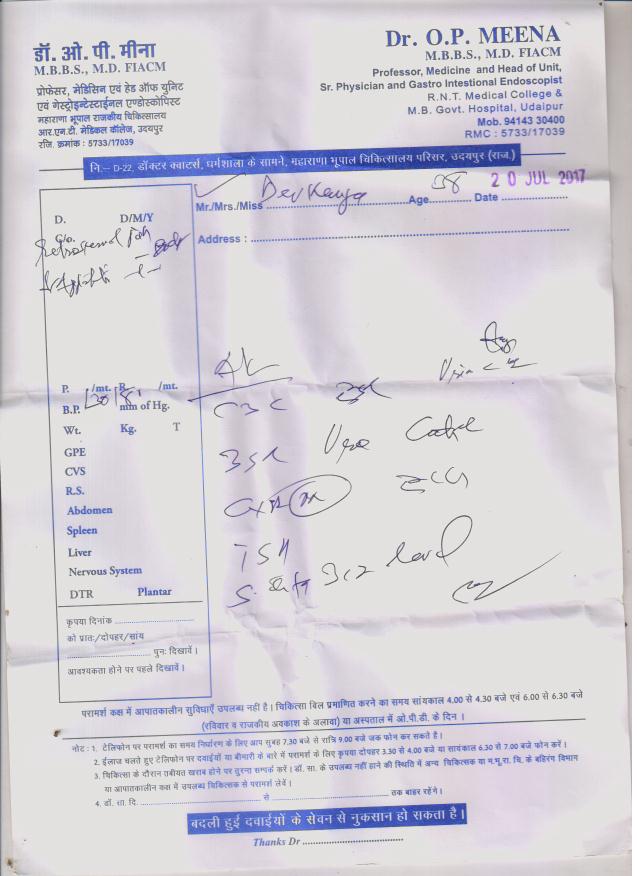 डॉ. ओ. पी. मीना
M.B.B.S., M.D. FIACM
प्रोफेसर, मेडिसिन एवं हेड ऑफ युनिट
एवं गेस्ट्रोइन्टेस्टाईनल एण्डोस्कोपिस्ट
महाराणा भूपाल राजकीय चिकित्सालय
आर.एन.टी. मेडिकल कॉलेज, उदयपुर
रजि. क्रमांक : 5733/17039
Dr. O.P. MEENA
M.B.B.S., M.D. FIACM
Professor, Medicine and Head of Unit,
Sr. Physician and Gastro Intestional Endoscopist
R.N.T. Medical College &
M.B. Govt. Hospital, Udaipur
Mob. 94143 30400
RMC : 5733/17039
नि.– D-22, डॉक्टर क्वाटर्स, धर्मशाला के सामने, महाराणा भूपाल चिकित्सालय परिसर, उदयपुर (राज.)
Mr./Mrs./Miss Dev Kanya Age 38 Date 20 JUL 2017
Address :
D. D/M/Y
C/o.
P. /mt. R. /mt.
B.P. mm of Hg.
Wt. Kg. T
GPE
CVS
R.S.
Abdomen
Spleen
Liver
Nervous System
DTR Plantar
CBC
TSH
ECG
S. B12 level
कृपया दिनांक
को प्रातः/दोपहर/सांय
पुनः दिखावें ।
आवश्यकता होने पर पहले दिखावें ।
परामर्श कक्ष में आपातकालीन सुविधाएँ उपलब्ध नहीं है । चिकित्सा बिल प्रमाणित करने का समय सांयकाल 4.00 से 4.30 बजे एवं 6.00 से 6.30 बजे
(रविवार व राजकीय अवकाश के अलावा) या अस्पताल में ओ.पी.डी. के दिन ।
नोट : 1. टेलिफोन पर परामर्श का समय निर्धारण के लिए आप सुबह 7.30 बजे से रात्रि 9.00 बजे तक फोन कर सकते है ।
2. ईलाज चलते हुए टेलिफोन पर दवाईयों या बीमारी के बारे में परामर्श के लिए कृपया दोपहर 3.30 से 4.00 बजे या सायंकाल 6.30 से 7.00 बजे फोन करें ।
3. चिकित्सा के दौरान तबीयत खराब होने पर तुरन्त सम्पर्क करें । डॉ. सा. के उपलब्ध नहीं होने की स्थिति में अन्य चिकित्सक या म.भू.रा. चि. के बहिरंग विभाग
या आपातकालीन कक्ष में उपलब्ध चिकित्सक से परामर्श लेवें ।
4. डॉ. सा. दि. से तक बाहर रहेंगे ।
बदली हुई दवाईयों के सेवन से नुकसान हो सकता है ।
Thanks Dr